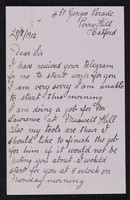 4 St Georges Parade
Perry Hill
Catford
Dear Sir
I have recived your telegram
for me to start work for you
I am very sorry I am unable
to start this morning
I am doing a job for Mr
Lawrence at Muswell Hill
Also my tools are their I
should like to finish the job
for him. if it would not be
putting you about I would
start for you at 8 oclock on
Monday morning